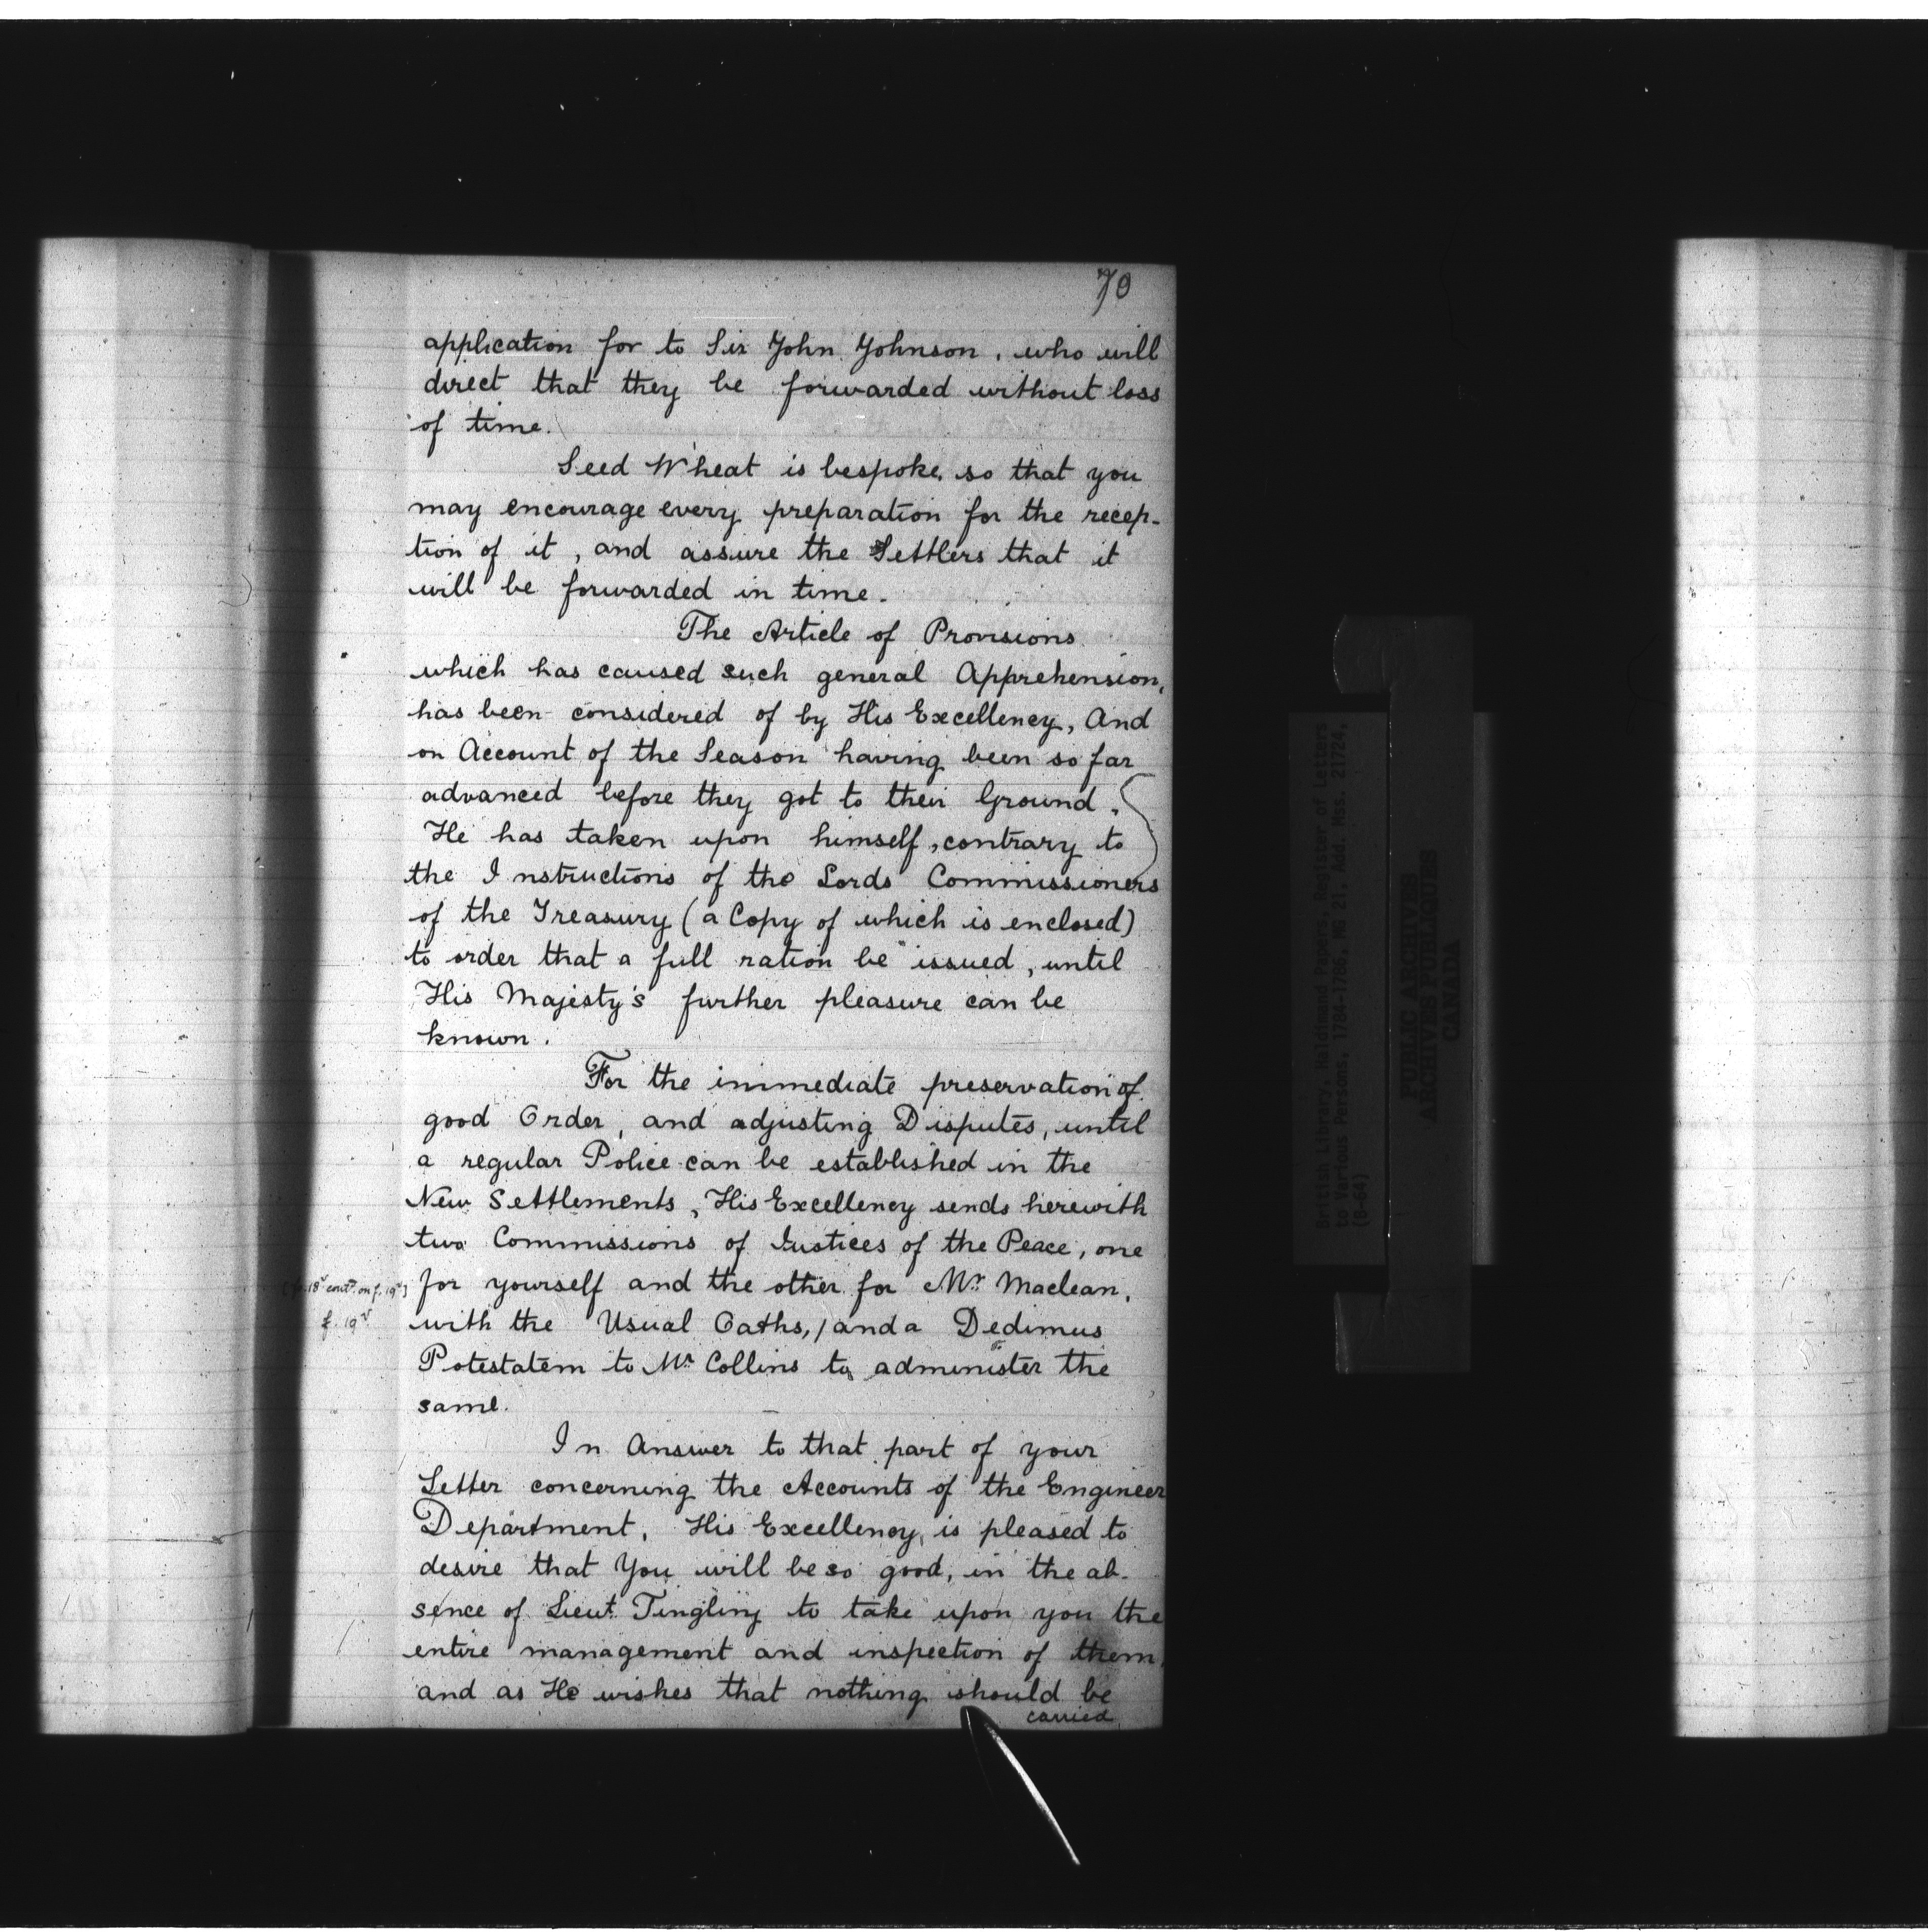 70
application for to Sir John Johnson, who will
direct that they be forwarded without loss
of time.
Seed Wheat is bespoke, so that you
may encourage every preparation for the recep-
tion of it, and assure the Settlers that it
will be forwarded in time.
The Article of Provisions
which has caused such general Apprehension,
has been considered of by His Excellency, And
on Account of the Season having been so far
advanced before they got to their Ground,
He has taken upon himself, contrary to
the Instructions of the Lords Commissioners
of the Treasury (a Copy of which is enclosed)
to order that a full ration be issued, until
His Majesty's further pleasure can be
known.
For the immediate preservation of
good Order, and adjusting Disputes, until
a regular Police can be established in the
New Settlements, His Excellency sends herewith
two Commissions of Justices of the Peace, one
(fo. 18v contd. on f. 19v)
for yourself and the other for Mr. Maclean,
f. 19v
with the Usual Oaths,/and a Dedimus
Potestatem to Mr. Collins to administer the
same.
In Answer to that part of your
Letter concerning the Accounts of the Engineer
Department, His Excellency is pleased to
desire that You will be so good, in the ab-
sence of Lieut. Tingling to take upon you the
entire management and inspection of them,
and as He wishes that nothing should be
carried
British Library. Haldimand Papers. Register of Letters
to Various Persons, 1784-1786, MG 21, Add. Mss. 21724,
(B-64)
PUBLIC ARCHIVES
ARCHIVES PUBLIQUES
CANADA